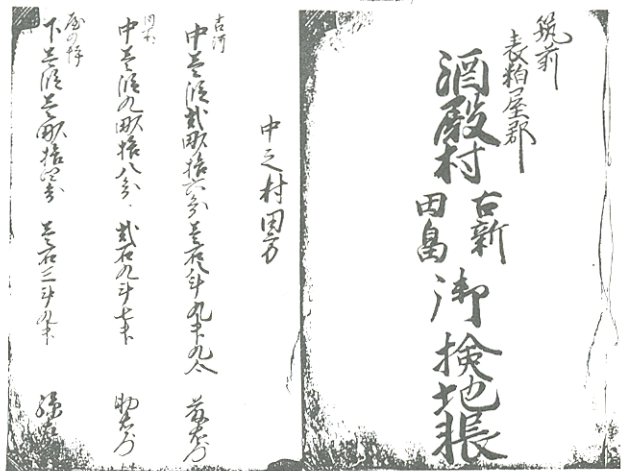 筑前
表粕屋郡
酒殿村
古新
田畠
御検地帳
中之村田方
古河
中壱段弐畝拾六歩 壱石八斗九升九合
同所
中壱段九畝拾八歩 弐石九斗七升
下壱段壱畝拾四歩 壱石三斗九升